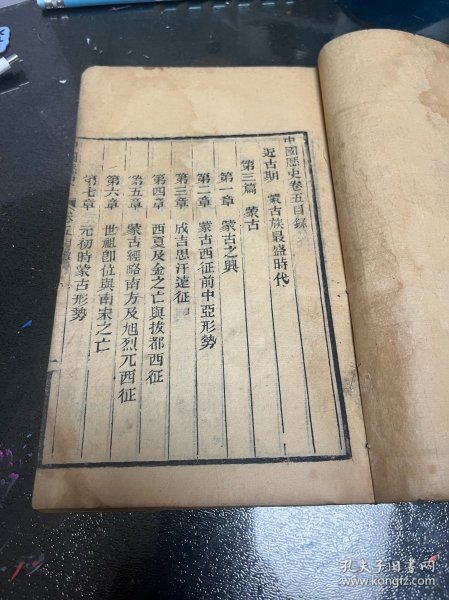 中國歷史卷五目錄
近古期　蒙古族最盛時代
第三篇　蒙古
第一章　蒙古之興
第二章　蒙古西征前中亞形勢
第三章　成吉思汗遠征
第四章　西夏及金之亡與拔都西征
第五章　蒙古經略南方及旭烈兀西征
第六章　世祖卽位與南宋之亡
第七章　元初時蒙古形勢
孔夫子旧书网
kongfz.com